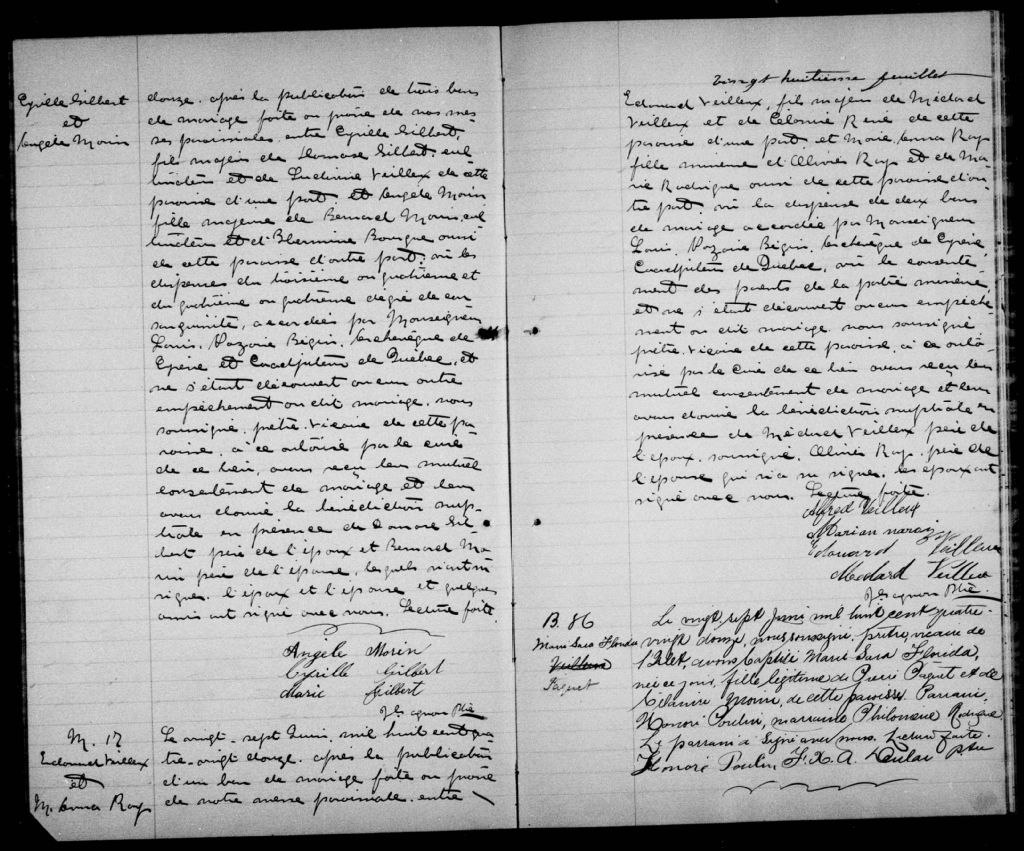 Cyrille Gilbert
et
Angele Morin
douze, après la publication de trois bans
de mariage faite au prone de nos mes-
ses paroissiales entre Cyrille Gilbert,
fils majeur de Damase Gilbert, cul
tivateur et de Luchine Veilleux de cette
paroisse d'une part, et Angele Morin
fille majeure de Bernard Morin, cul
tivateur et d'Hermine Bourque aussi
de cette paroisse d'autre part; vu les
dispenses du troisième au quatrième et
du quatrième au quatrième degré de con
sanguinité, accordées par Monseigneur
Louis Nazaire Bégin, Archevêque de
Cyrène et Coadjuteur de Québec, et
ne s'étant découvert aucun autre
empêchement au dit mariage, nous
soussigné, prêtre vicaire de cette pa-
roisse, à ce autorisé par le curé
de ce lieu, avons reçu leur mutuel
consentement de mariage et leur
avons donné la bénédiction nup-
tiale en présence de Damase Gil-
bert père de l'époux et Bernard Mo-
rin père de l'épouse, lesquels n'ont su
signer. l'époux et l'épouse et quelques
amis ont signé avec nous. Lecture faite
Angèle Morin
Cyrille Gilbert
Marie Gilbert
Ptre
M. 17
Edouard Veilleux
et
M. Anna Roy
Le vingt-sept Juin, mil huit cent qua
tre-vingt douze, après la publication
d'un ban de mariage faite au prone
de notre messe paroissiale, entre
vingt huitieme feuillet
Edouard Veilleux, fils majeur de Médard
Veilleux et de Célanie René de cette
paroisse d'une part, et Marie Anna Roy
fille mineure d'Olivier Roy et de Ma-
rie Rodrigue aussi de cette paroisse d'au-
tre part; vu la dispense de deux bans
de mariage accordée par Monseigneur
Louis Nazaire Bégin, Archevêque de Cyrène,
Coadjuteur de Québec, vu le consente-
ment des parents de la partie mineure,
et ne s'étant découvert aucun empêche-
ment au dit mariage nous soussigné
prêtre vicaire de cette paroisse, à ce auto-
risé par le Curé de ce lieu avons reçu leur
mutuel consentement de mariage et leur
avons donné la bénédiction nuptiale en
présence de Médard Veilleux père de
l'époux soussigné, Olivier Roy père de
l'épouse qui n'a su signer. les époux ont
signé avec nous. Lecture faite.
Alfred Veilleux
Edouard Veilleux
Medard Veilleux
Ptre
B. 86
Marie Sara Florida
Veilleux
Paquet
Le vingt sept Juin mil huit cent quatre-
vingt douze, nous soussigné, prêtre, vicaire de
l'Islet, avons baptisé Marie Sara Florida,
née ce jour, fille légitime de Pierre Paquet et de
Célanire Morin, de cette paroisse. Parrain
Honoré Poulin, marraine Philomène Rodrigue
Le parrain a signé avec nous. Lecture faite.
Honoré Poulin F. X. A. Ptre